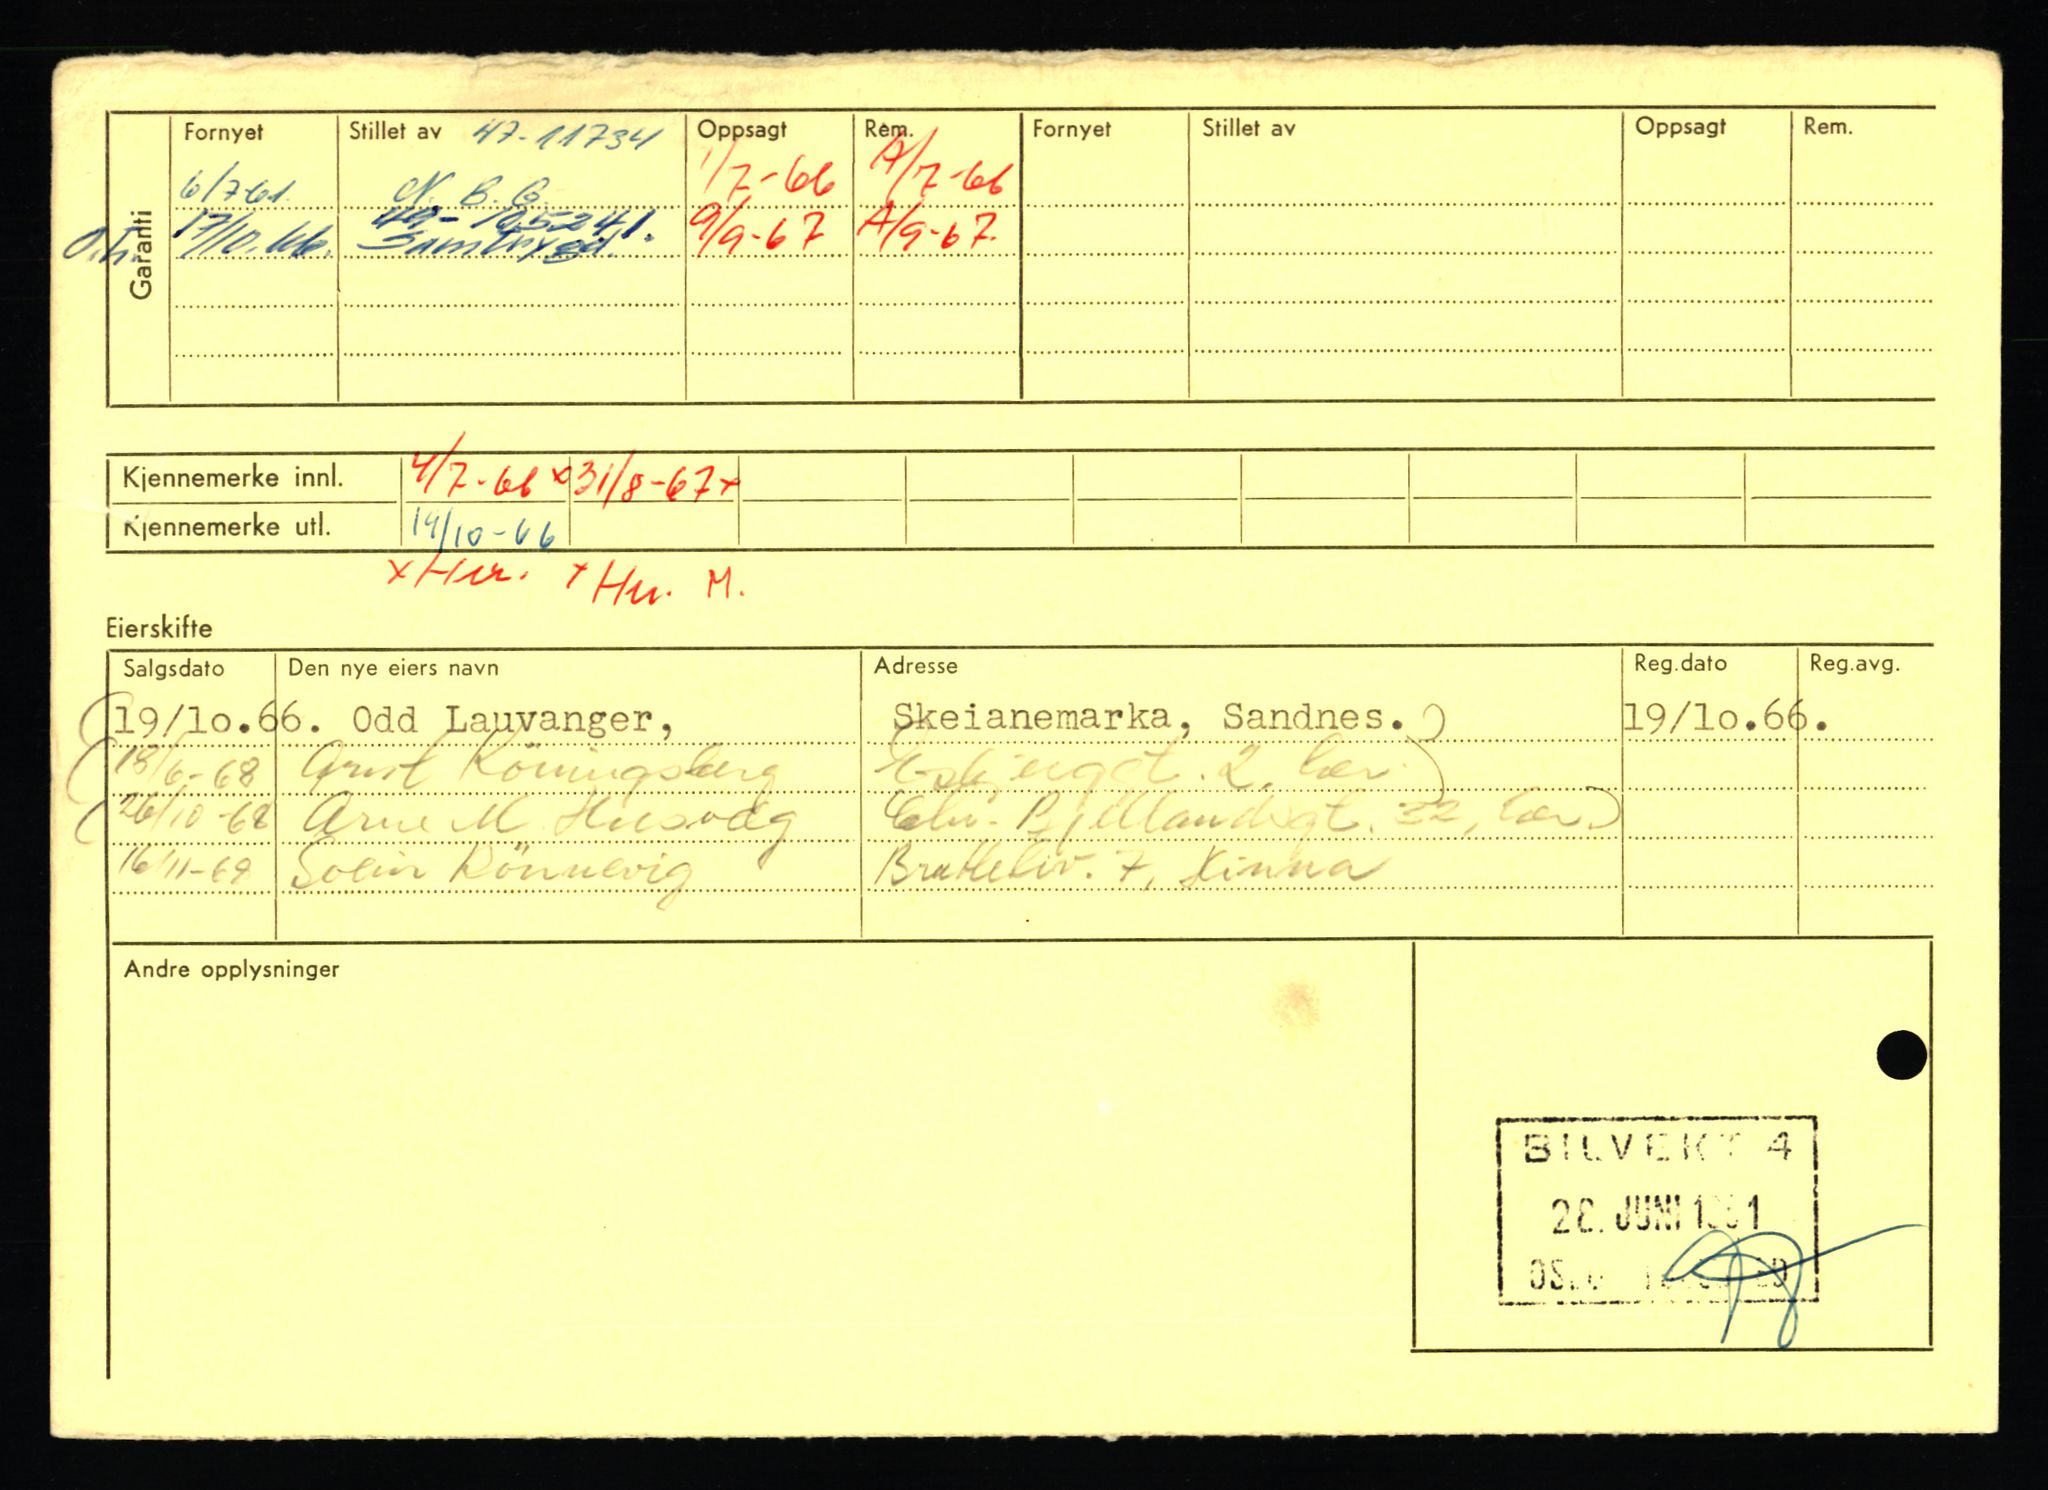 Garanti
Fornyet Stillet av 47-11734 Oppsagt Rem. Fornyet Stillet av Oppsagt Rem.
6/7-61. N. B. C. 1/7-66 A/7-66
17/10.66. 49-105241. 9/9-67 A/9-67.
Samtrygd.
Kjennemerke innl. 4/7-66 x 31/8-67 x
Kjennemerke utl. 14/10-66
x Hu. x Hu. M.
Eierskifte
Salgsdato Den nye eiers navn Adresse Reg.dato Reg.avg.
(19/lo.66. Odd Lauvanger, Skeianemarka, Sandnes.) 19/lo.66.
(18/6-68 Arvst Köningsberg Esbjerggt. 2, her.)
(26/10-68 Arne M. Husvæg Chr. Bjellandsgt. 32, her.)
16/11-68 Svein Rönnevig Brattebv. 7, Hinna
Andre opplysninger
BILVEKT 4
JUNI